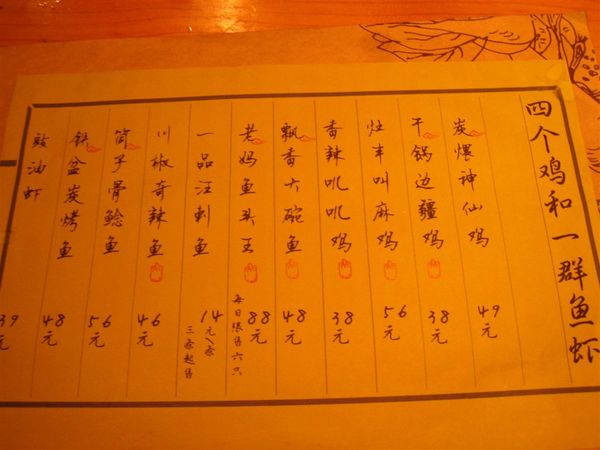 四个鸡和一群鱼虾
炭煨神仙鸡 49元
干锅边疆鸡 38元
灶丰叫麻鸡 56元
香辣叽叽鸡 38元
飘香大碗鱼 48元
老妈鱼头王 88元
每日限售六只
一品汪刺鱼 14元/条
三条起售
川椒奇辣鱼 46元
筒子骨鲶鱼 56元
锅盆炭烤鱼 48元
豉油虾 39元